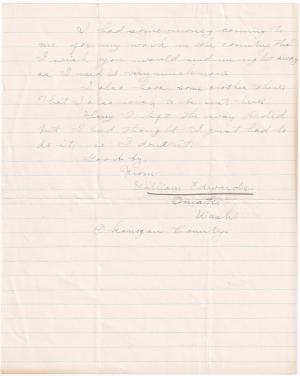 I had some money coming to
me for my work in the country that
I wish you would send me right away
as I need it very much now.
I also have some clothes there
that I also wish to be sent here.
Sorry I left the way I did
but I had thought I just had
to do it, so I done it.
Good by.
From
William Edwards
Omak
Wash
Okanogan County.